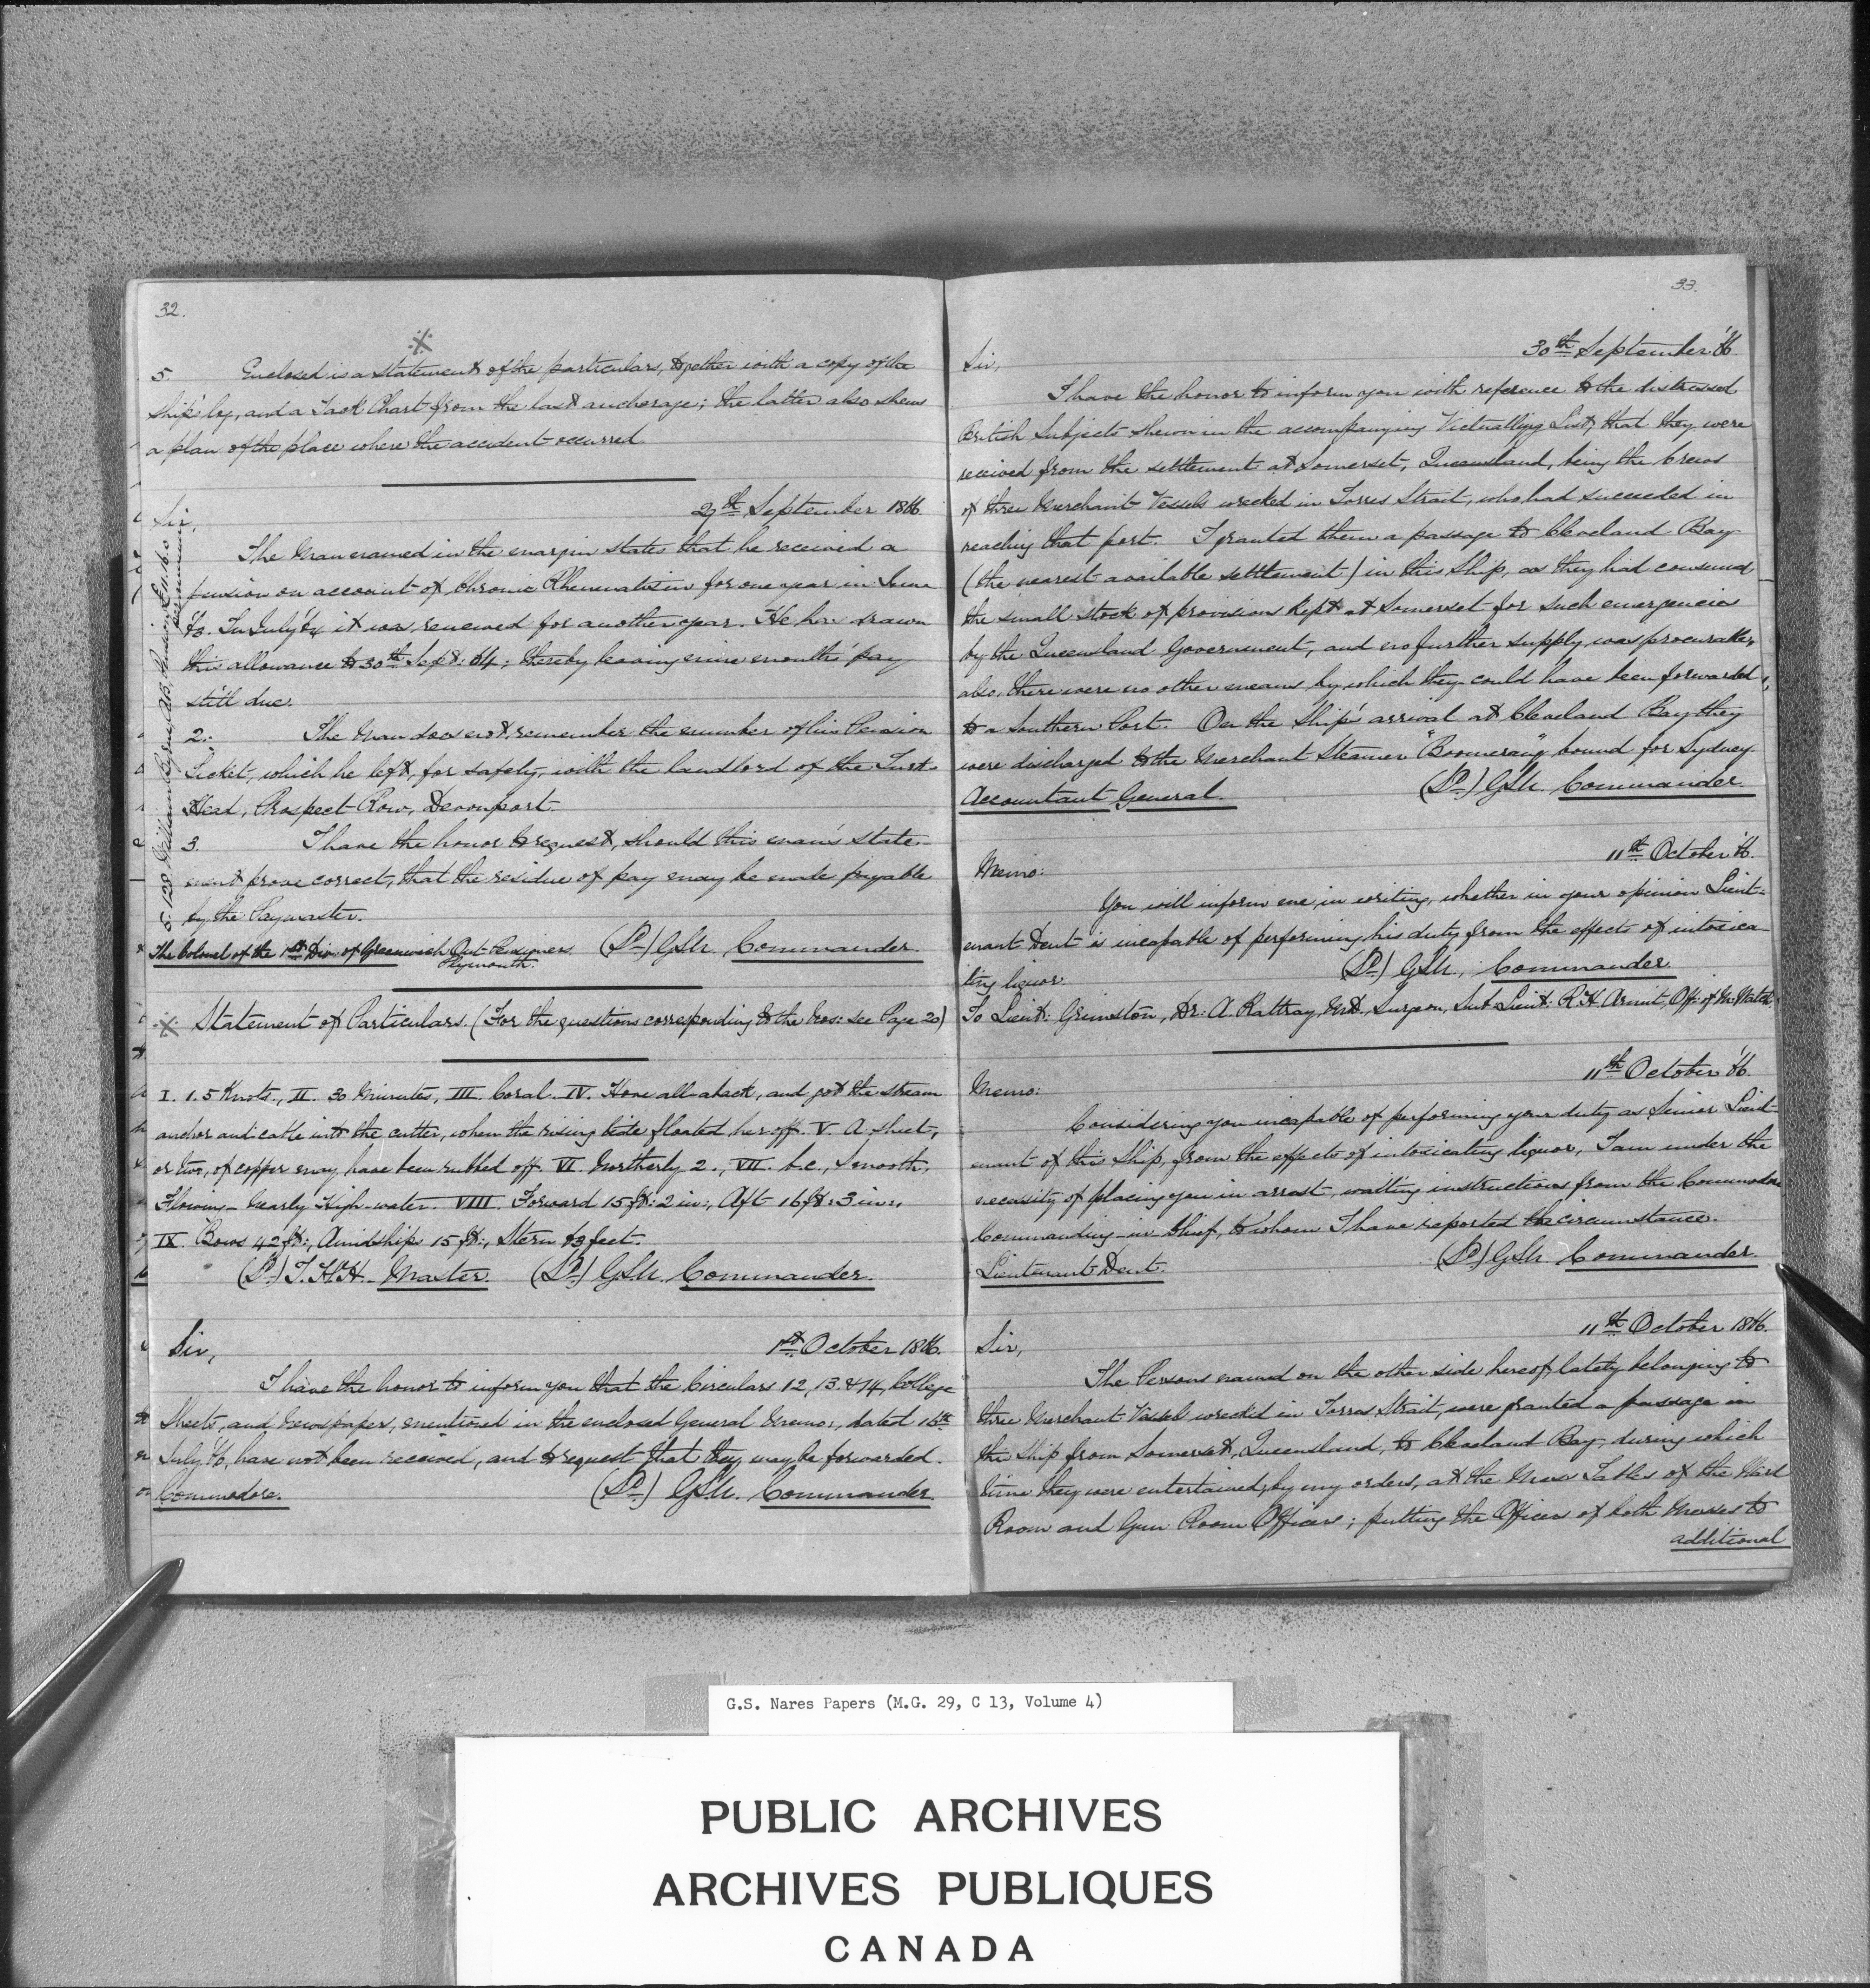 32.
※
5. Enclosed is a statement of the particulars, together with a copy of the
ship's log, and a Track Chart from the last anchorage; the latter also shews
a plan of the place where the accident occurred.
27th September 1866.
Sir,
The Man named in the margin states that he received a
pension on account of Chronic Rheumatism for one year in June
'63. In July '64 it was renewed for another year. He has drawn
this allowance to 30th Sept: 64; thereby leaving nine months' pay
still due.
2. The Man does not remember the number of his Pension
Ticket, which he left, for safety, with the landlord of the Turk
Head, Prospect Row, Devonport.
3. I have the honor to request, should this man's state-
ment prove correct, that the residue of pay may be made payable
by the Paymaster.
The Colonel of the 1st Div: of Greenwich Out-Pensioners (Sd) GSN. Commander.
Plymouth.
※ Statement of Particulars. (For the questions corresponding to the Nos: see Page 20)
I. 1.5 Knots., II. 30 Minutes, III. Coral. IV. Hove all aback, and got the stream
anchor and cable into the cutter, when the rising tide floated her off. V. A sheet,
or two, of copper may have been rubbed off. VI. Northerly 2., VII. b.c., Smooth.
Flowing - Nearly High-water. VIII. Forward 15 ft: 2 in:, Aft 16 ft: 3 in:,
IX. Bows 42 ft:, Amidships 15 ft:, Stern 43 feet.
(Sd) T.H.H. Master. (Sd) GSN. Commander.
Sir, 1st October 1866.
I have the honor to inform you that the Circulars 12, 13 & 14, College
Sheets, and Newspaper, mentioned in the enclosed General Memo:, dated 16th
July '66, have not been received, and to request that they may be forwarded.
Commodore. (Sd) GSN. Commander.
33.
30th September '66.
Sir,
I have the honor to inform you with reference to the distressed
British Subjects shewn in the accompanying Victualling List, that they were
received from the settlement at Somerset, Queensland, being the Crews
of three Merchant Vessels wrecked in Torres Strait, who had succeeded in
reaching that port. I granted them a passage to Cleveland Bay
(the nearest available settlement) in this Ship, as they had consumed
the small stock of provisions kept at Somerset for such emergencies
by the Queensland Government, and no further supply was procurable,
also, there were no other means by which they could have been forwarded
to a Southern Port. On the Ship's arrival at Cleveland Bay they
were discharged to the Merchant Steamer "Boomerang" bound for Sydney.
Accountant General. (Sd) GSN. Commander.
11th October '66.
Memo:
You will inform me, in writing, whether in your opinion Lieut-
enant Dent is incapable of performing his duty from the effects of intoxica-
ting liquor.
(Sd) GSN. Commander
To Lieut: Grimston, Dr: A. Rattray, M.D., Surgeon, Sub Lieut: R.H. Armit, Off: of Mg: Watch.
11th October '66.
Memo:
Considering you incapable of performing your duty as Senior Lieut-
enant of this Ship, from the effects of intoxicating liquor, I am under the
necessity of placing you in arrest, waiting instructions from the Commodore
Commanding-in-Chief, to whom I have reported the circumstance.
Lieutenant Dent. (Sd) GSN. Commander.
11th October 1866.
Sir,
The Persons named on the other side hereof, lately belonging to
three Merchant Vessels wrecked in Torres Strait, were granted a passage in
this Ship from Somerset, Queensland, to Cleveland Bay, during which
time they were entertained, by my orders, at the Mess Tables of the Ward
Room and Gun Room Officers; putting the Officers of both Messes to
additional
G.S. Nares Papers (M.G. 29, C 13, Volume 4)
PUBLIC ARCHIVES
ARCHIVES PUBLIQUES
CANADA